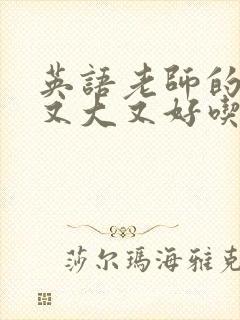 英語老師的
又大又好喫
莎尔瑪海雅克